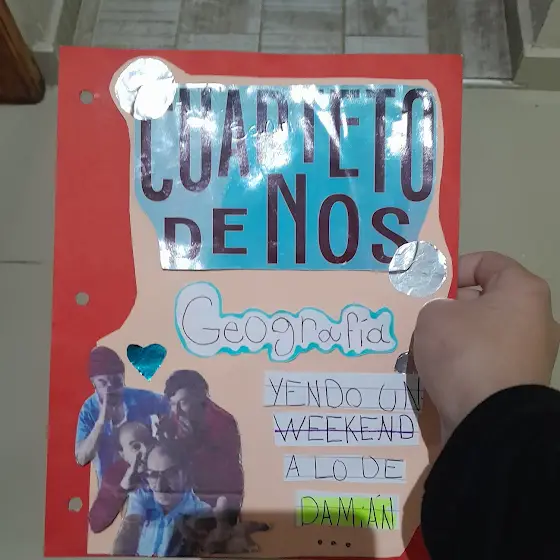 CUARTETO
DE NOS
Geografía
YENDO UN
WEEKEND
A LO DE
DAMIÁN
...